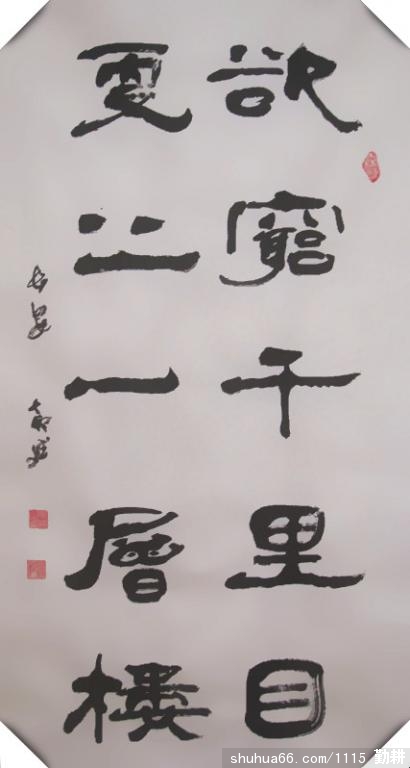 欲窮千里目
更上一層樓
長安
shuhua66.com/1115 勤耕